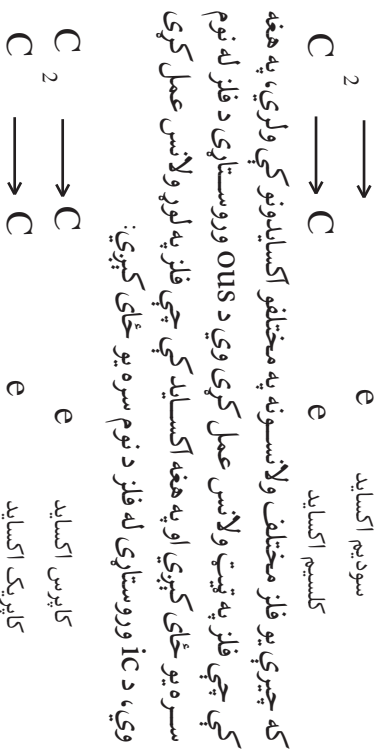 2 → e سوديم اکسايد
C → C e کلسيم اکسايد
که چيرې يو فلز مختلف ولانسونه په مختلفو اکسايدونو کې ولري، په هغه
کې چې فلز په ټيټ ولانس عمل کړی وي د ous وروستاړی د فلز له نوم
سره يو ځای کيږي او په هغه اکسايد کې چې فلز په لوړ ولانس عمل کړی
وي، د ic وروستاړی له فلز د نوم سره يو ځای کيږي:
C 2 → C e کاپرس اکسايد
C → C e کاپريک اکسايد